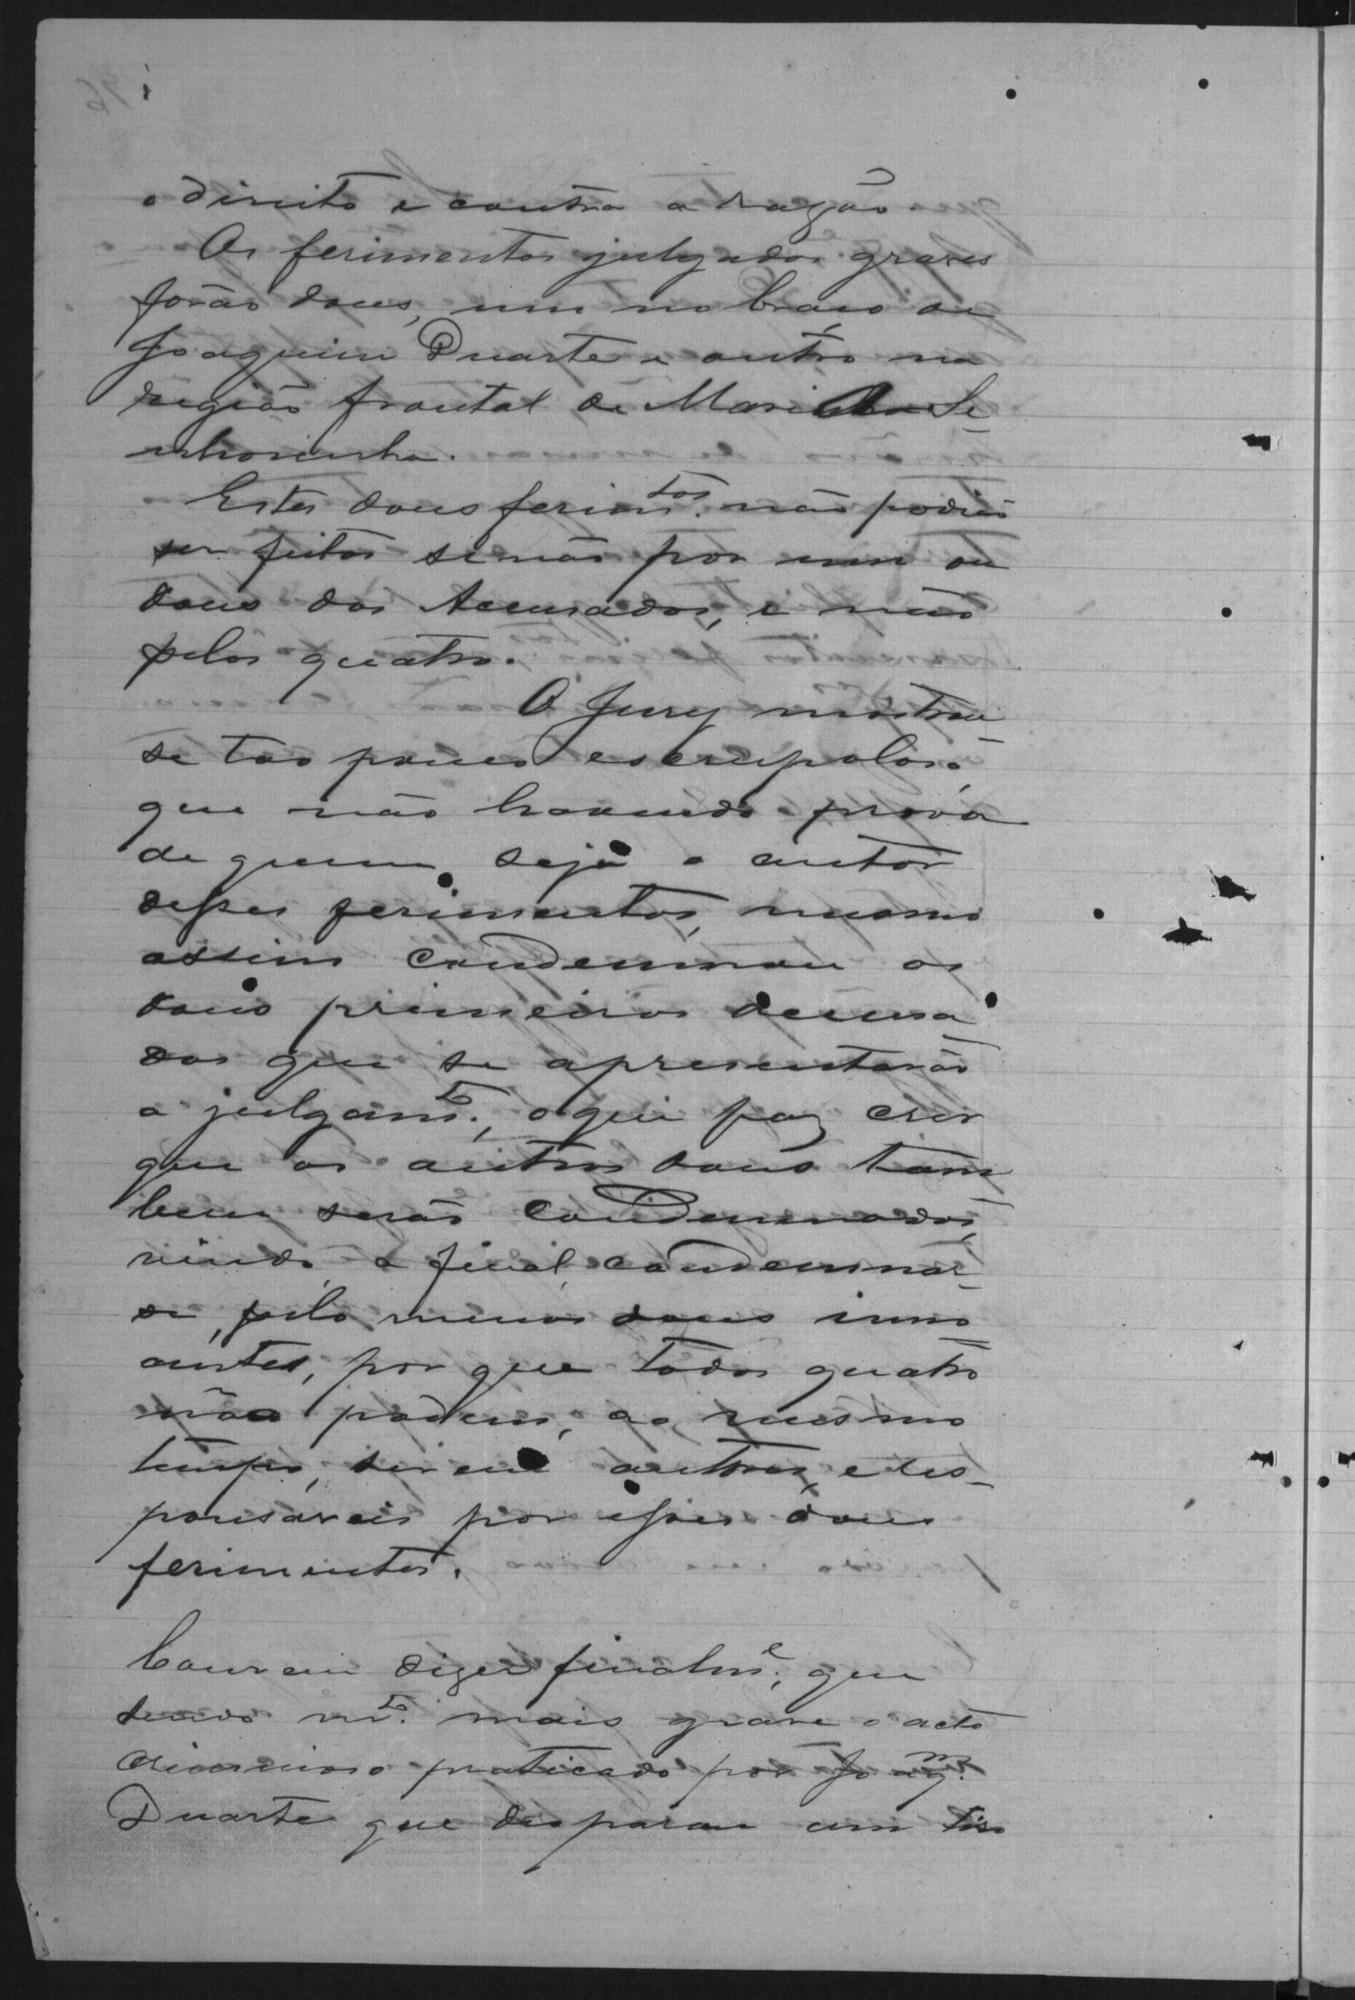 o direito e contra a razão.
Os ferimentos julgados graves
forão dous, um no braço de
Joaquim Duarte e outro na
região frontal de Maria Se-
nhorinha.
Estes dous ferim.tos não podião
ser feitos senão por um ou
dous dos Accusados, e não
pelos quatro.
O Jury mostrou-
se tão pouco escrupoloso
que não havendo prova
de quem seja o autor
desses ferimentos, mesmo
assim condemnou os
dous primeiros accusa-
dos que se apresentarão
a julgam.to, o que faz crer
que os outros dous tam
bem serão condemnados,
vindo a final condemnar-
se, pelo menos dous inno-
centes, por que todos quatro
não podem, ao mesmo
tempo, serem autores e res-
ponsaveis por esses dous
ferimentos.
Convem dizer finalm.e, que
sendo m.to mais grave o acto
criminoso praticado por Joaq.m
Duarte que disparou um tiro